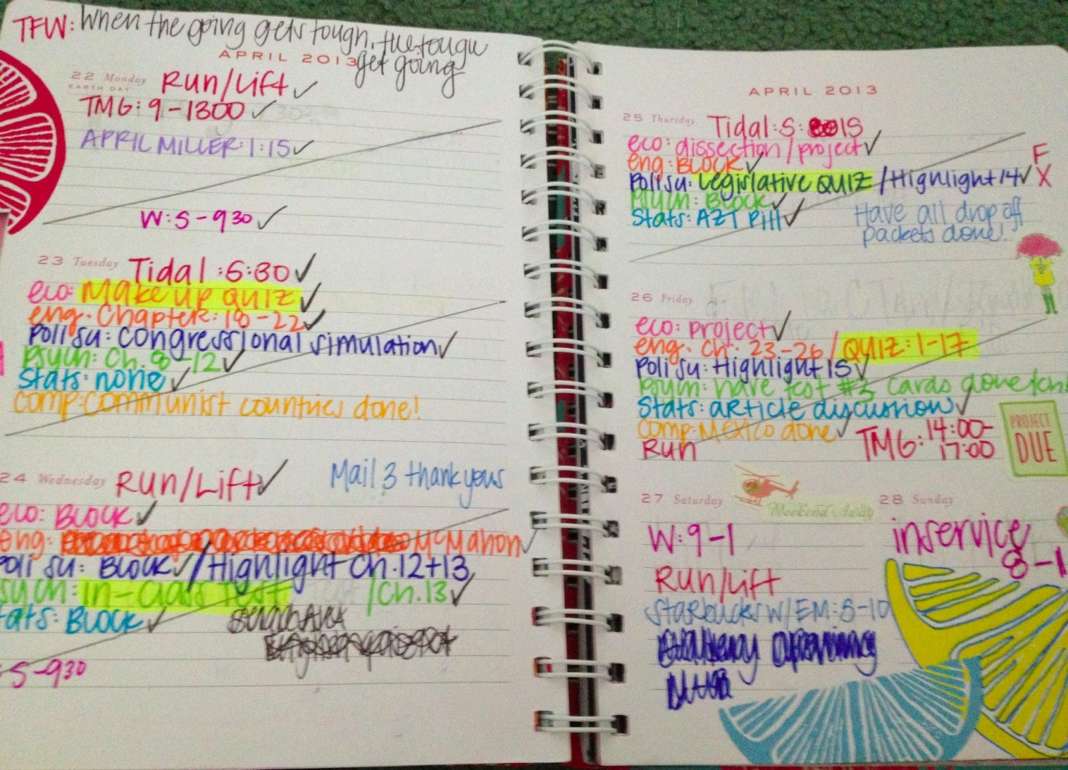 TFW: When the going gets tough, the tough
get going
APRIL 2013
22 Monday
EARTH DAY
Run/Lift ✓
TMG: 9-1300 ✓
APRIL MILLER: 1:15 ✓
W: 5-930 ✓
23 Tuesday
Tidal: 5:30 ✓
eco: Make up QUIZ ✓
eng: Chapter: 18-22 ✓
Poli su: congressional simulation ✓
Psych: Ch. 8-12 ✓
Stats: none ✓
comp: communist countries done!
24 Wednesday
Run/Lift ✓
Mail 3 thank yous
eco: BLOCK ✓
eng: McMahon ✓
Poli su: BLOCK ✓/Highlight Ch. 12+13
Psych: In-Class Test /Ch. 13 ✓
Stats: BLOCK ✓
5-930
APRIL 2013
25 Thursday
Tidal: 5:15
eco: dissection/project ✓
eng: BLOCK ✓
Poli su: Legislative QUIZ/Highlight 14 ✓
F
X
Psych: BLOCK ✓
Stats: AZT Pill ✓
Have all drop off
packets done!
26 Friday
eco: project ✓
eng: Ch. 23-26/QUIZ: 1-17
Poli su: Highlight 15 ✓
Psych: have test #3 cards done
Stats: article discussion ✓
comp: Mexico done ✓
Run
TMG: 14:00-
17:00
PROJECT
DUE
27 Saturday
W: 9-1
Run/Lift
Starbucks W/EM: 5-10
28 Sunday
inservice
8-1